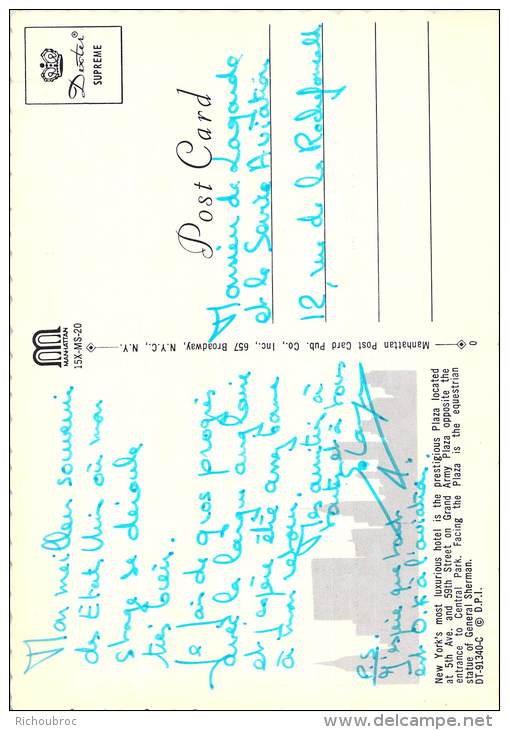 Mon meilleur souvenir
des Etats Unis où mon
stage se déroule
très bien.
Je fais de gros progrès
avec la langue anglaise
et espère être assez bonne
à mon retour.
Mes amitiés à
toutes et à tous
P.S.
J'espère que tout
est O.K à l'aviation.
New York's most luxurious hotel is the prestigious Plaza located
at 5th Ave. and 59th Street on Grand Army Plaza opposite the
entrance to Central Park. Facing the Plaza is the equestrian
statue of General Sherman.
DT-91340-C © D.P.I.
MANHATTAN
15X-MS-20
Manhattan Post Card Pub. Co., Inc., 657 Broadway, N.Y.C., N.Y.
0
Post Card
Dexter ®
SUPREME
Monsieur de Lagarde
et le Service Aviation
12, rue de la Rochefoucauld
Richoubroc
delcampe.net